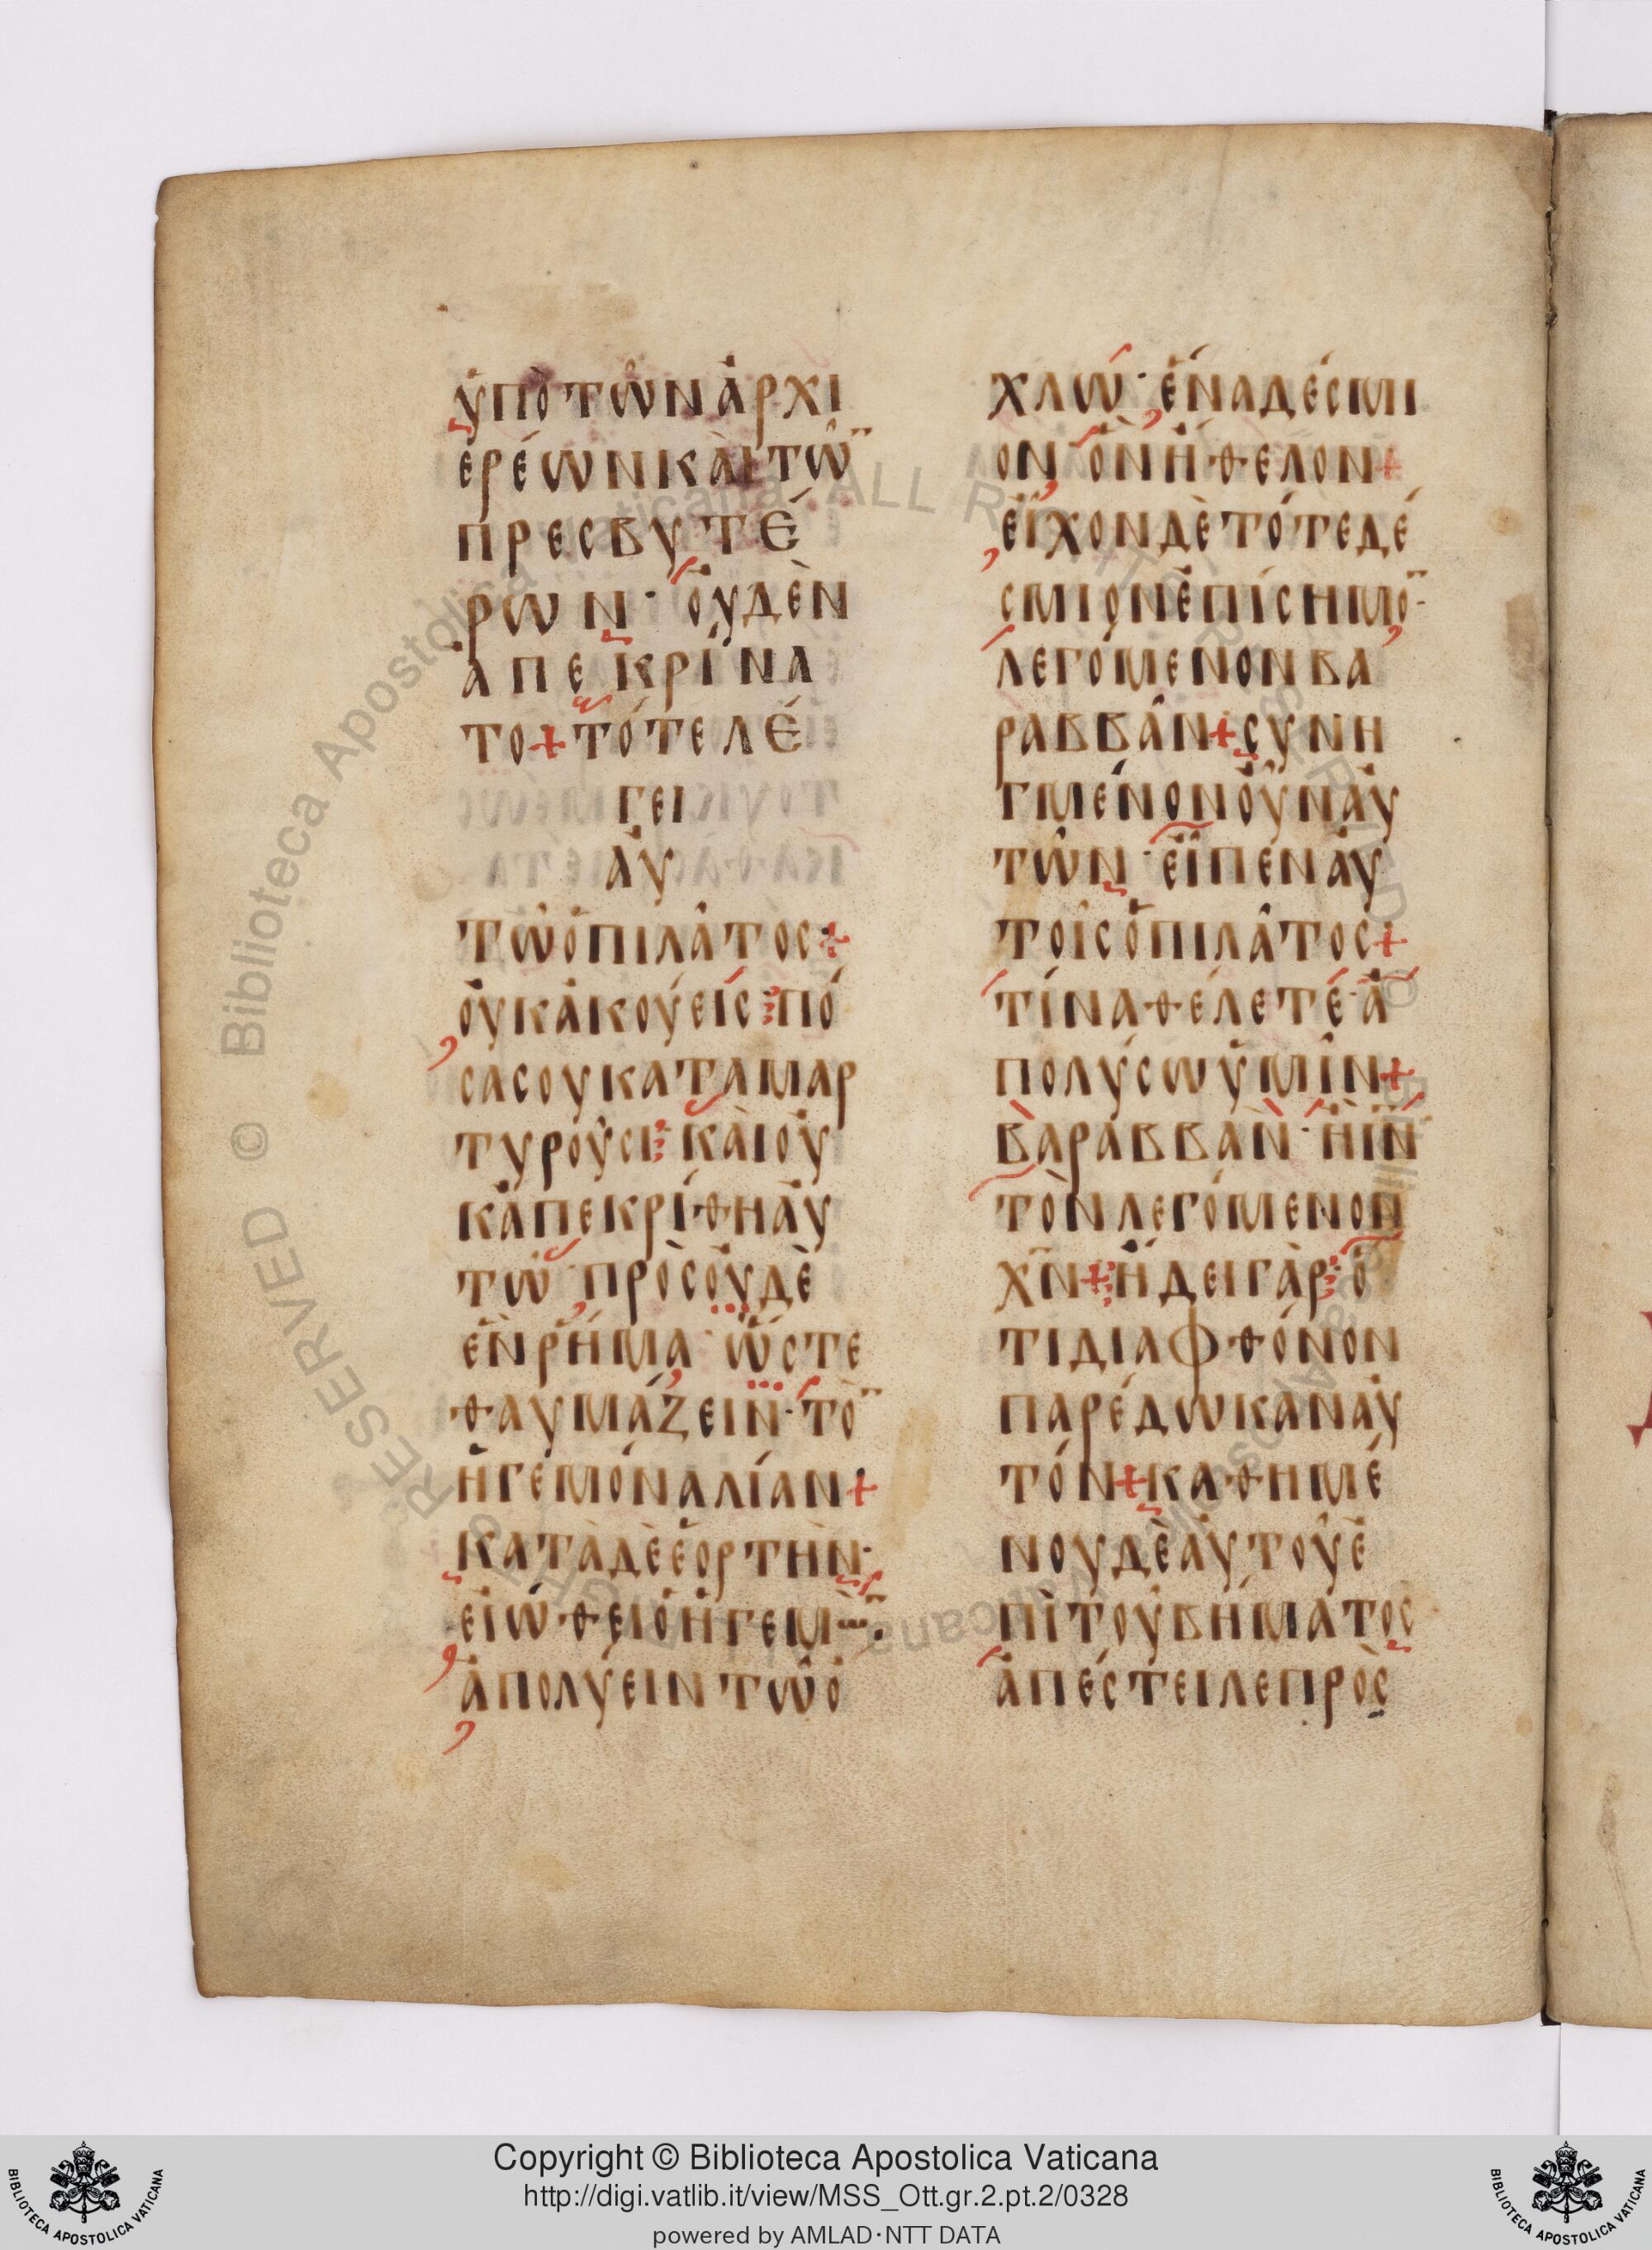 ὑπὸ τῶν ἀρχι
ερέων καὶ τῶ̄
πρεσβυτέ
ρων· οὐδὲν
ἀπεκρίνα
το + τότε λέ
γει
αὐ
τῶ ὁ πιλᾶτος +
οὐκ ἀκούεις πό
σα σου καταμαρ
τυροῦσι· καὶ οὐ
κ ἀπεκρίθη αὐ
τῶ πρὸς οὐδὲ
ἓν ρῆμα· ὥστε
θαυμάζειν· τὸ̄
ἡγεμόνα λίαν +
κατὰ δὲ ἑορτὴν·
εἰώθει ὁ ἡγεμ
ἀπολύειν τῶ ὀ
χλω· ἕνα δέσμι
ον ὃν ἤθελον +
εἶχον δὲ τότε δέ
σμιον ἐπίσημο̄·
λεγόμενον βα
ραββᾶν + συνη
γμένον οὖν αὐ
τῶν· εἶπεν αὐ
τοῖς ὁ πιλᾶτος +
τίνα θέλετέ· ἀ
πολύσω ὑμῖν +
βαραββὰν· ἢ ιν̄
τὸν λεγόμενον
χν̄ + ἤδει γὰρ· ὅ
τι διὰ φθόνον
παρέδωκαν αὐ
τόν + καθημέ
νου δὲ αὐτοῦ ἐ
πὶ τοῦ βήματος
ἀπέστειλε πρὸς
Copyright © Biblioteca Apostolica Vaticana
http://digi.vatlib.it/view/MSS_Ott.gr.2.pt.2/0328
powered by AMLAD·NTT DATA
BIBLIOTECA APOSTOLICA VATICANA
BIBLIOTECA APOSTOLICA VATICANA